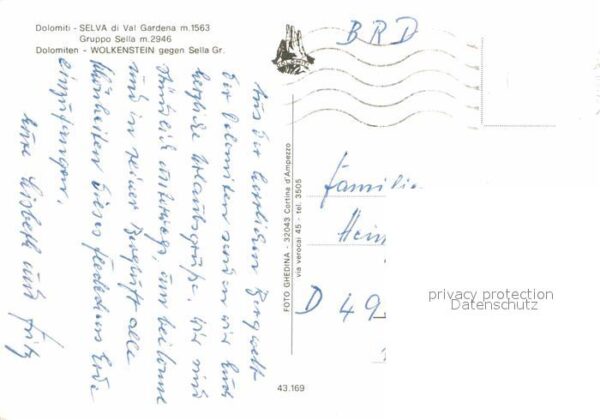 Dolomiti - SELVA di Val Gardena m.1563
Gruppo Sella m.2946
Dolomiten - WOLKENSTEIN gegen Sella Gr.
Aus der herrlichen Bergwelt
der Dolomiten senden wir Euch
herzliche Urlaubsgrüße. Wir sind
ständig unterwegs, um bei Sonne
und in reiner Bergluft alle
Schönheiten dieses Fleckchens Erde
einzufangen.
Eure Lisbeth und Fritz
FOTO GHEDINA - 32043 Cortina d'Ampezzo
via verocai 45 - tel. 3505
43.169
BRD
Familie
Hein
D 49
privacy protection
Datenschutz